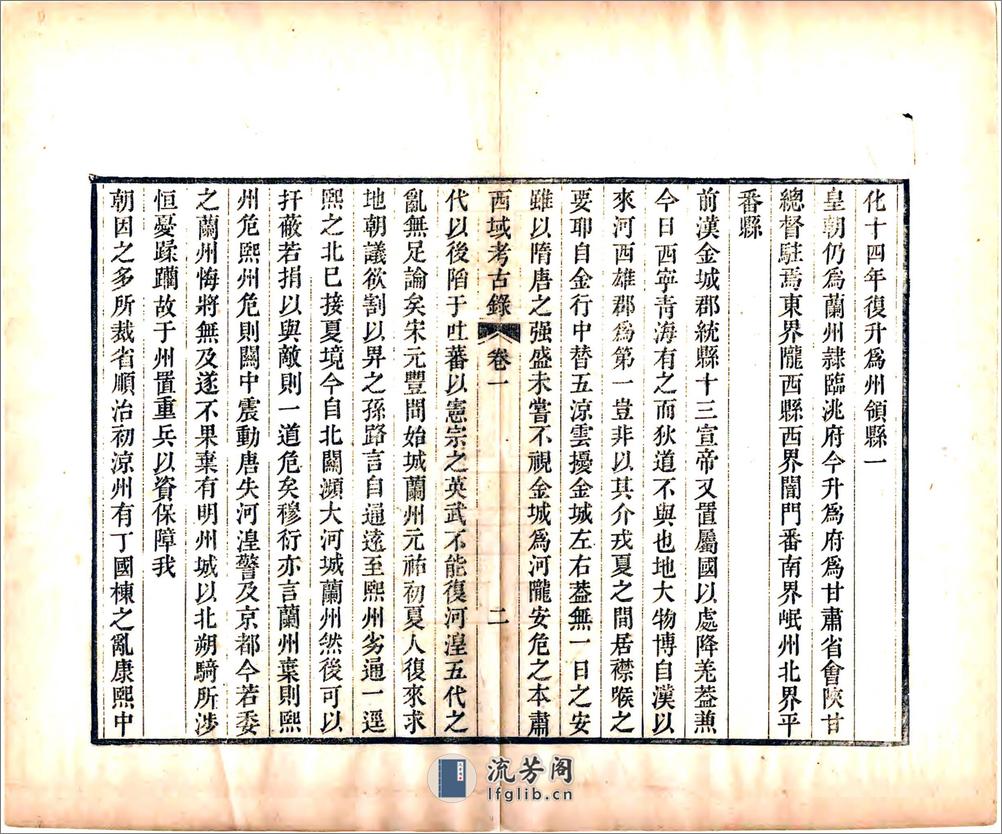 化十四年復升爲州領縣一
皇朝仍爲蘭州隷臨洮府今升爲府爲甘肅省會陝甘
總督駐焉東界隴西縣西界閽門番南界岷州北界平
番縣
前漢金城郡統縣十三宣帝又置屬國以處降羌葢兼
今日西寧青海有之而狄道不與也地大物博自漢以
來河西雄郡爲第一豈非以其介戎夏之間居襟喉之
要耶自金行中替五涼雲擾金城左右葢無一日之安
雖以隋唐之强盛未嘗不視金城爲河隴安危之本肅
西域考古錄 卷一 二
代以後陷于吐蕃以憲宗之英武不能復河湟五代之
亂無足論矣宋元豐間始城蘭州元祐初夏人復來求
地朝議欲割以畀之孫路言自通遠至熙州劣通一逕
熙之北巳接夏境今自北關瀕大河城蘭州然後可以
扞蔽若捐以與敵則一道危矣穆衍亦言蘭州棄則熙
州危熙州危則關中震動唐失河湟警及京都今若委
之蘭州悔將無及遂不果棄有明州城以北朔騎所涉
恒憂蹂躪故于州置重兵以資保障我
朝因之多所裁省順治初涼州有丁國棟之亂康熙中
流芳阁
lfglib.cn